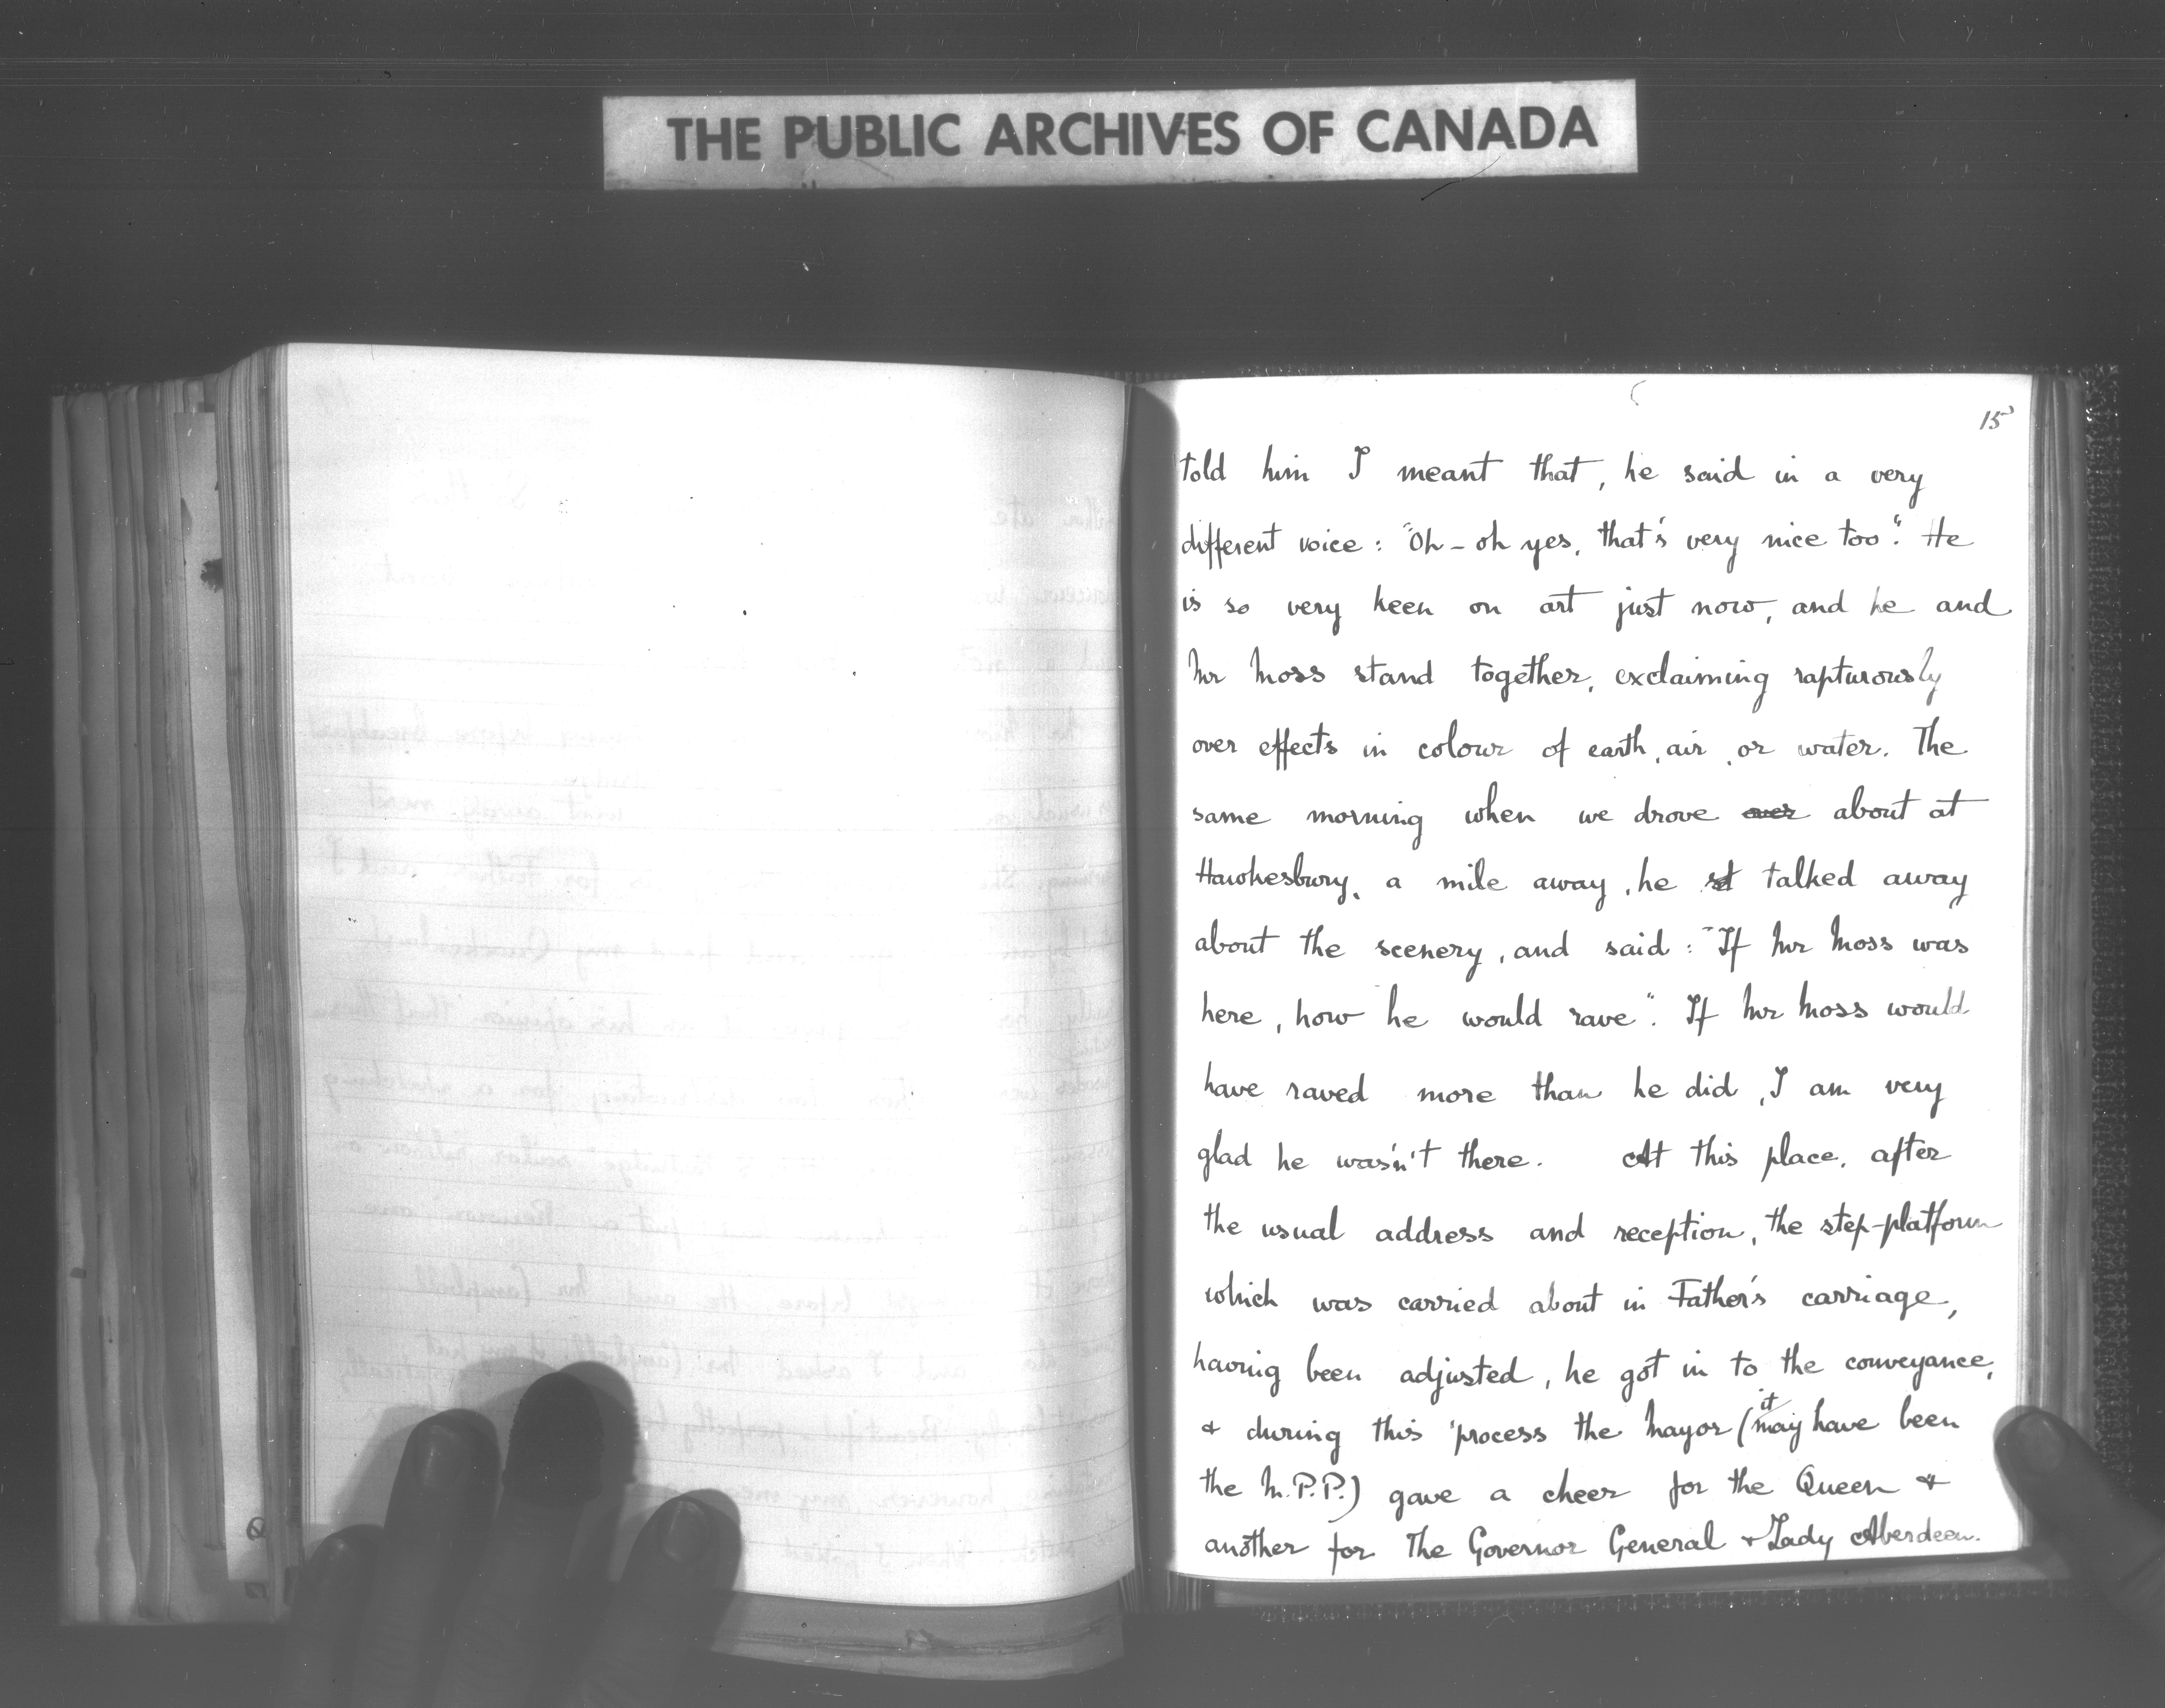 THE PUBLIC ARCHIVES OF CANADA
15
told him I meant that, he said in a very
different voice: "Oh - oh yes, that's very nice too". He
is so very keen on art just now, and he and
Mr Moss stand together, exclaiming rapturously
over effects in colour of earth, air, or water. The
same morning when we drove over about at
Hawkesbury, a mile away, he st talked away
about the scenery, and said: "If Mr Moss was
here, how he would rave". If Mr Moss would
have raved more than he did, I am very
glad he wasn't there. At this place, after
the usual address and reception, the step-platform
which was carried about in Father's carriage,
having been adjusted, he got in to the conveyance,
& during this process the Mayor (it may have been
the M.P.P.) gave a cheer for the Queen &
another for The Governor General & Lady Aberdeen.